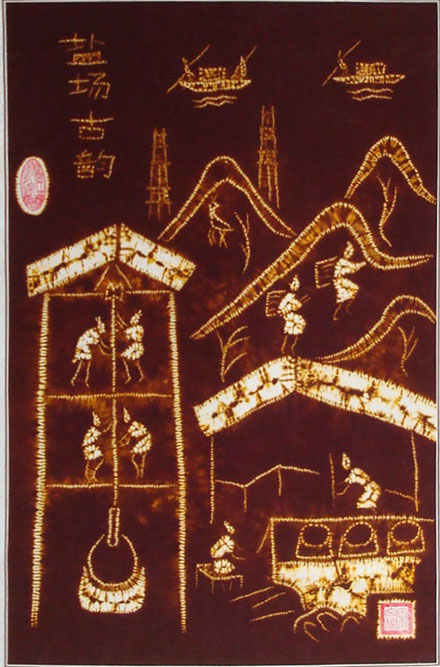 盐场古韵